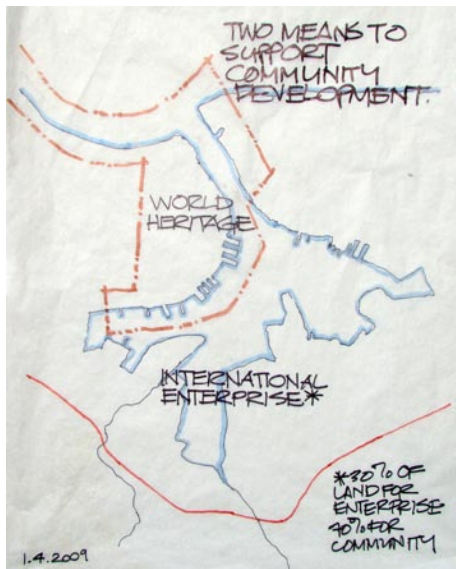 TWO MEANS TO
SUPPORT
COMMUNITY
DEVELOPMENT.
WORLD
HERITAGE
INTERNATIONAL
ENTERPRISE*
*30% OF
LAND FOR
ENTERPRISE
70% FOR
COMMUNITY
1.4.2009